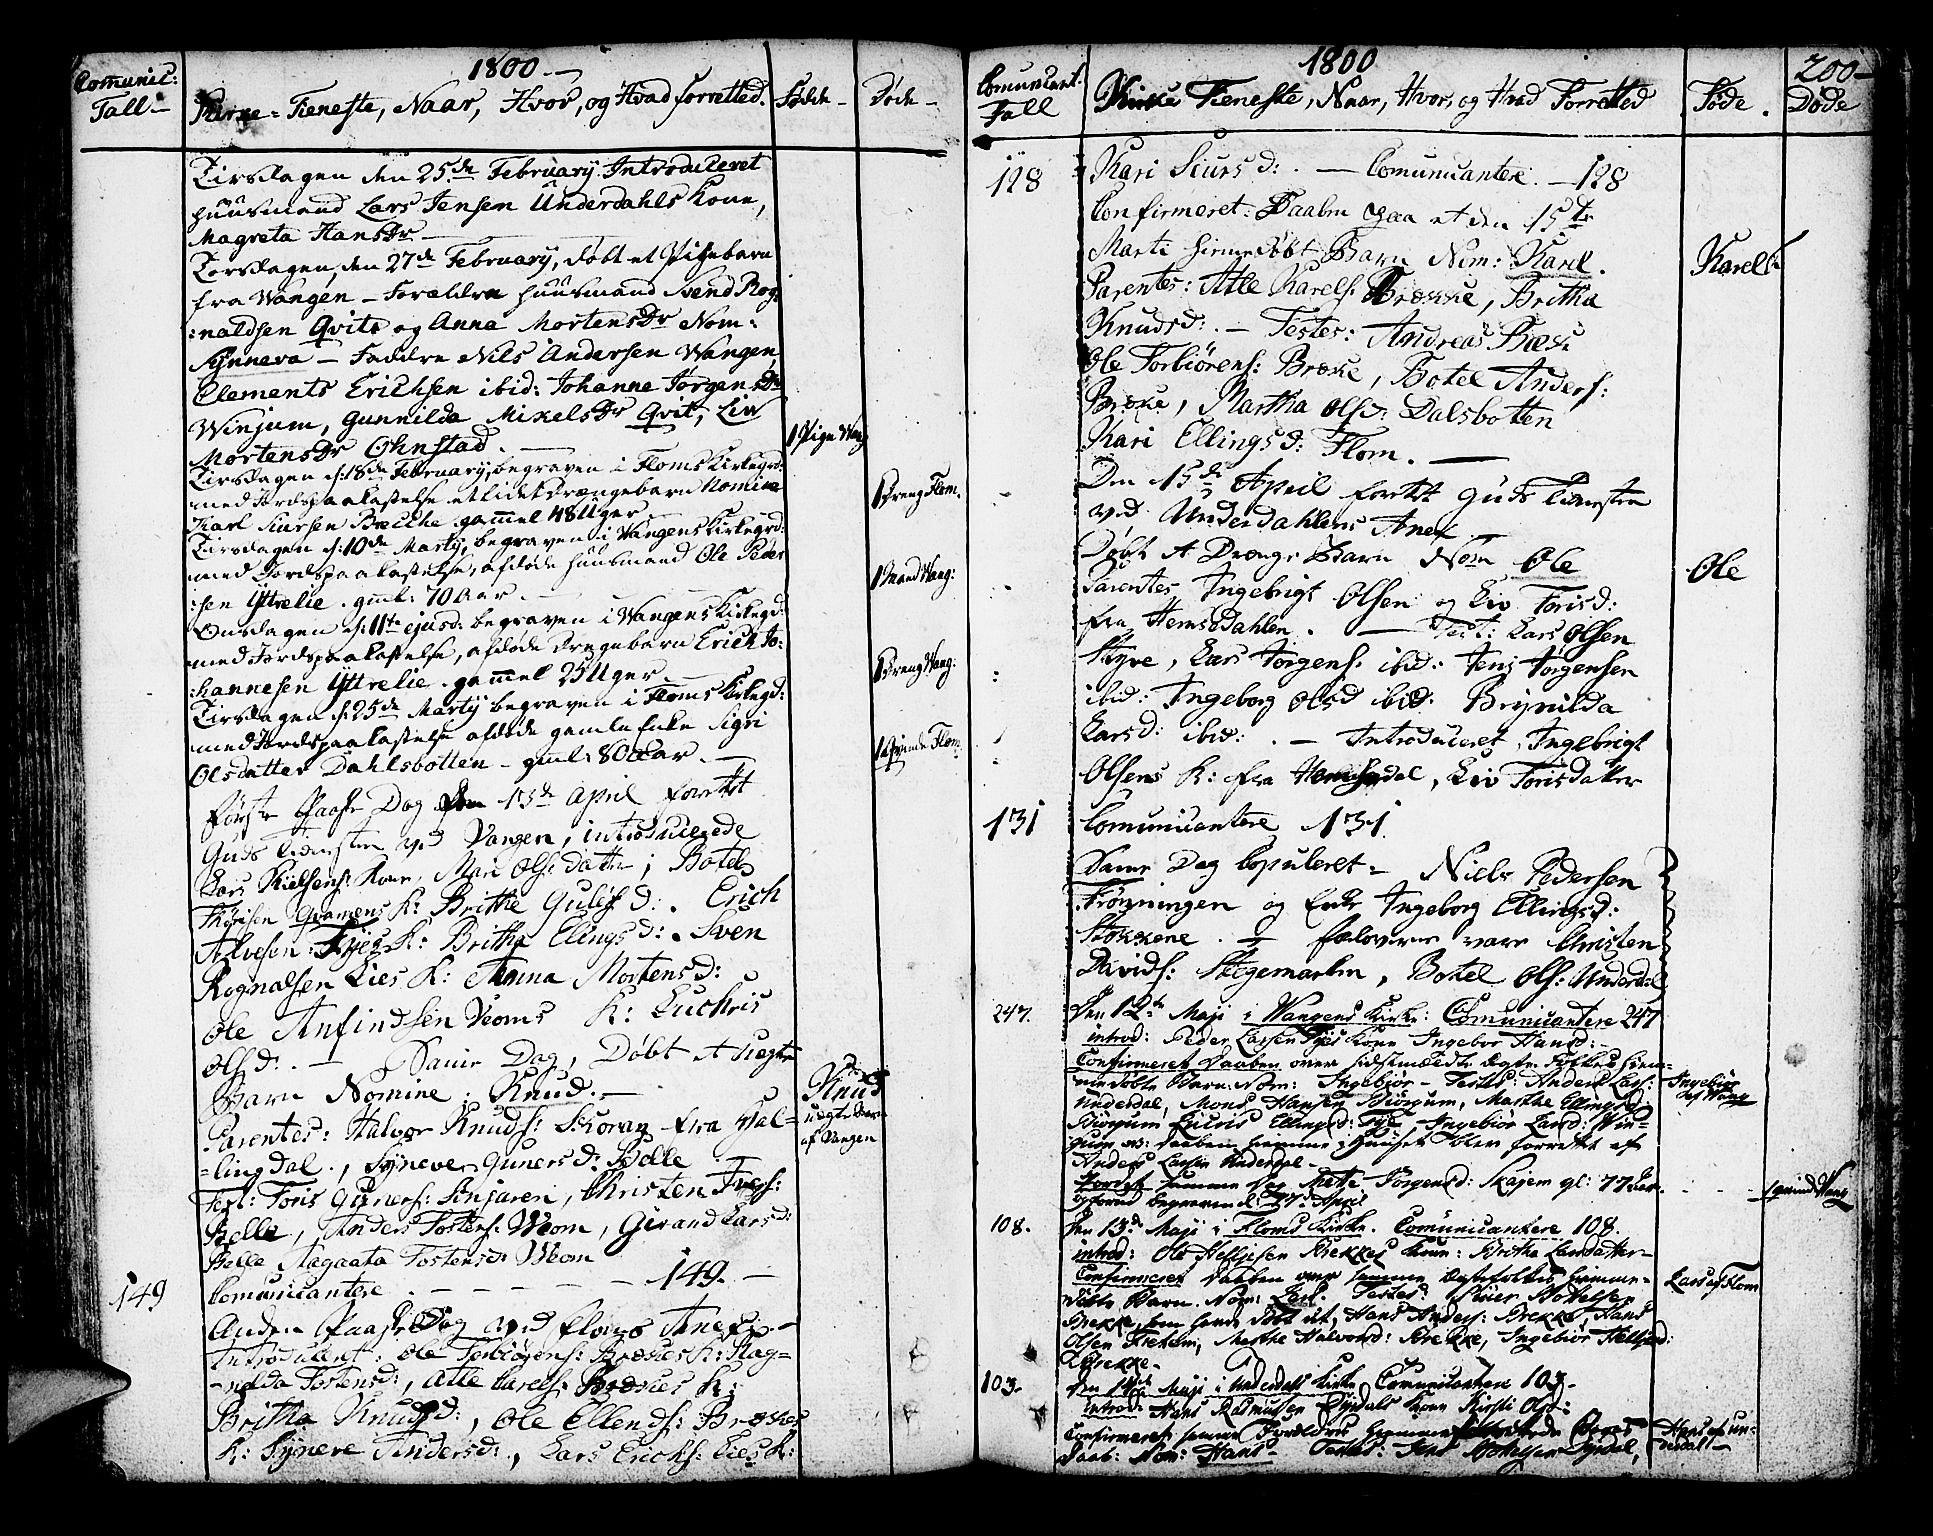 1800.—
Comunic: Tall.—
Kirke=Tieneste, Naar, Hvor, og Hvad forretted.
Fødde—
Døde—
Tirsdagen den 25de February Introduceret
huusmand Lars Jensen Underdahls Kone,
Magreta HansDr —
Torsdagen, den 27de February, døbt et Pigebarn
fra Wangen — Forældre huusmand Svend Rog
:naldsen Qvite og Anna MortensDr Nom:
Synneva — Faddre Nils Andersen Wangen,
Clements Erichsen ibid: Johanne JørgensDr
Winjum, Gunnilda MikelsDr Qvit, Liv
MortensDr Ohnstad. —
1 Pige Wang
Tirsdagen d: 18de February, begraven i Floms Kirkegrd:
med Jordspaakastelse et lidet Drængebarn Nomine
Karl Siursen Brecke gammel 48 Uger —
1 Dreng Flom.
Tirsdagen d: 10de Martÿ, begraven i Wangens Kirkegrd:
med Jordspaakastelse, afdøde huusmand Ole Peder
:sen Yttrelie. gml: 70 Aar. —
1 Mand Wang:
Onsdagen d: 11te ejusd: begraven i Wangens Kirkegd:
med Jordspaakastelse, afdøde Drengebarn Erich Jo:
:hannesen Yttrelie. gammel 25 Uger. —
1 Dreng Wang:
Tirsdagen d: 25de Martÿ begraven i Floms Kirkegd:
med Jordspaakastelse afdøde gamle Enke Sigri
Olsdatter Dahlsbotten — gml: 80 Aar. —
1 Qvinde Flom
Første Paaske Dag den 13de April forettet
Guds tienesten ved Vangen, introducerede
Lars Nielsens: Kone, Mari Olsdatter; Botel
Thorisen Gramens K: Brithe Gulefs D:. Erich
Alvesen: Fyes K: Britha Elings D:. Sven
Rognalsen Lies K: Anna Mortens d:
Ole Anfindsen Veoms K: Luchris
Olsd:. — Samme Dag, Døbt et uegte
Barn Nomine: Knud.—
Parentes: Halvor Knuds: Skoran fra Hal=
=lingdal., Syneve Guners D: Belle —
Test: Toris Guners: Sinjaren, Christen Ivers:
Belle, Anders Tostens: Weom, Giørand Larsd:
Belle Aagaata Tostensd: Weom
Knud
uegte Barn
af Vangen
149
Comunicantere. — — — — 149. —
Anden Paaske Dag ved Floms Anex. —
Introduceret: Ole Torbiørens: Brækes K: Rag=
=nilda Tostensd:, Atle Carels: Brækes K:
Britha Knudsd:, Ole Ellends: Brækes
K: Syneve Andersd:, Lars Ericks: Lies K:
1800
200—
Comunicant: Tall
Kirke Tieneste, Naar, Hvor, og Hvad Forretted
Føde.
Døde
128
Kari Siurs d:. — Comunicantere. — 128
Confirmeret: Daaben paa et den 15de
Marti hiemmedøbt Barn Nom: Karel.
Karel
Parentes: Atle Karels: Brække, Britha
Knudsd:. — Testes: Andreas Bræke
Ole Torbiørens: Bræke, Botel Anders:
Bræke, Martha Olsd: Dalsbotten
Kari Ellings d: Flom. —
Den 15de April forettet Guds Tienesten
ved Underdahlens Anex
Døbt et Drenge Barn Nom Ole
Ole
Parentes, Ingebrigt Olsen og Liv Torisd:
fra Hemsedahlen. — Test: Lars Olsen
Styve, Lars Jørgens: ibid: Jens Jørgensen
ibid: Ingeborg Olsd ibid. Brynilda
Larsd: ibid:. — Introduceret, Ingebrigt
Olsens K: fra Hemsedal, Liv Torisdatter
131
Comunicantere 131.
Samme Dag Copuleret= Niels Pedersen
Frønningen og Enke Ingeborg Ellingsd:
Stokkene. — Forlovere vare Christen
Davids: Stegemarken, Botel Ols: Underdal
247.
Den 12te Maji i Wangens Kirke: Comunicantere 247
introd: Peder Larsen Fyes kone Ingebor Hansd: —
Confirmeret Daaben over sidstmeldte Ægte Folkes hiem=
medøbte Barn. Nom: Ingebiør — Testes: Anders Lars:
Ingebiør
af Wang
Underdal, Mons Hansen Biørgum, Marthe Ellingsd:
Biørgum Lucris Ellingsd: Fye, Ingebiør Larsd: Win=
gum NB: Daaben hiemme i Huuset blev forrettet af
Anders Larsen Underdal —
Jordet samme Dag Mette Jørgensd: Skajem gl: 77 Aar. — — —
1 qvind Wang
og forud begraven d: 27d April
108.
Den 13d Maji i Floms Kirke. Comunicantere 108
introd: Ole Helljesen Brekkes kone: Britha Larsdatter—
Confirmeret Daaben over samme ægtefolkes hiemme=
døbte Barn. Nom: Lars. Testes: Siver Botolfsen
Lars af Flom
Brekke, som havde døbt it, Hans Anders: Brekke, Hans
Olsen Fretem, Marthe Halvorsd: Brekke, Ingebiør Helljesd:
Brekke.
103.
Den 14de Maji i Underdals kirke, Comunicantere 103—
introd: Hans Rasmussen Dyrdals kone Kirsti Olsd:
Confirmeret samme Forældres hiemmedøbte Barns
Daab: Nom: Hans — Testes: Jens Botolfsen Dyrdal,
Hans af Un=
derdal—